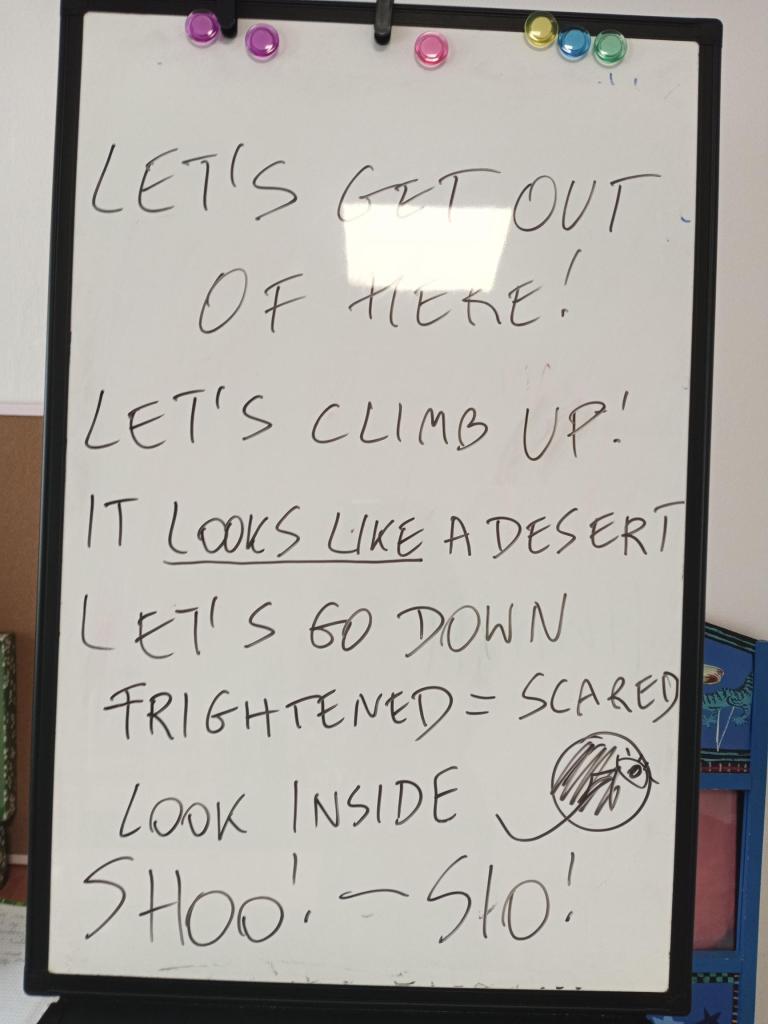 LET'S GET OUT
OF HERE!
LET'S CLIMB UP!
IT LOOKS LIKE A DESERT
LET'S GO DOWN
FRIGHTENED = SCARED
LOOK INSIDE
SHOO! - SIO!